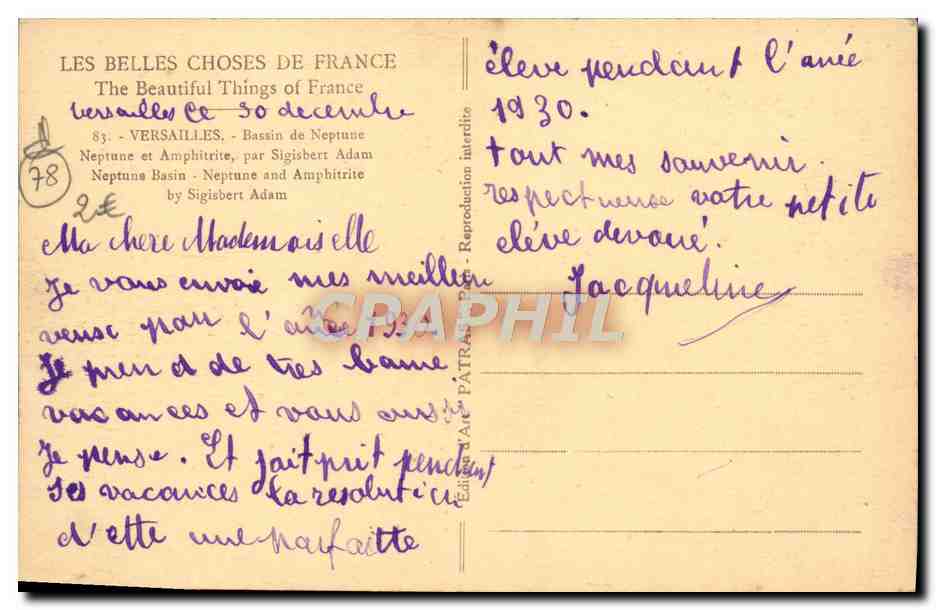 LES BELLES CHOSES DE FRANCE
The Beautiful Things of France
Versailles Le 30 decembre
83. - VERSAILLES. - Bassin de Neptune
Neptune et Amphitrite, par Sigisbert Adam
Neptune Basin - Neptune and Amphitrite
by Sigisbert Adam
78
2€
Ma chere Mademoiselle
Je vous envoie mes meilleur
veuse pour l'année 1930
Je prend de tres bonne
vacances et vous aussi
Je pense. Et jait prit pendant
ses vacances la resolution
d'ette une parfaitte
Edition d'Art PATRAS Paris - Reproduction interdite
élève pendant l'anée
1930.
tout mes souvenir
respectueuse votre petite
eléve devoué.
Jacqueline
CPAPHIL